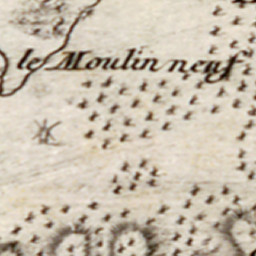 le Moulin neuf